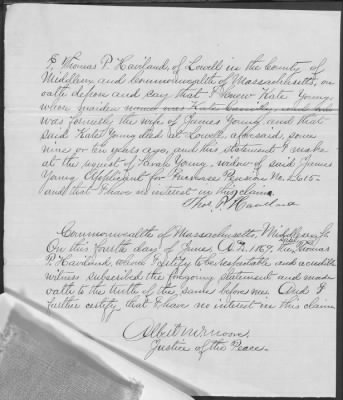 I, Thomas P. Haviland, of Lowell in the County of
Middlesex and Commonwealth of Massachusetts, on
oath depose and say that I knew Kate Young,
whose maiden name was Kate
was formerly the wife of James Young and that
said Kate Young died at Lowell, aforesaid, some
nine or ten years ago, and this statement I make
at the request of Sarah Young, widow of said James
Young Applicant for Pension No.
and that I have no interest in this claim.
Thos. P. Haviland
Commonwealth of Massachusetts Middlesex ss.
On this fourth day of June A.D. 1869, Thomas
P. Haviland, whom I certify to be respectable and credible
witness subscribed the foregoing statement and made
oath to the truth of the same before me. And I
further certify that I have no interest in this claim
Albert
Justice of the Peace.